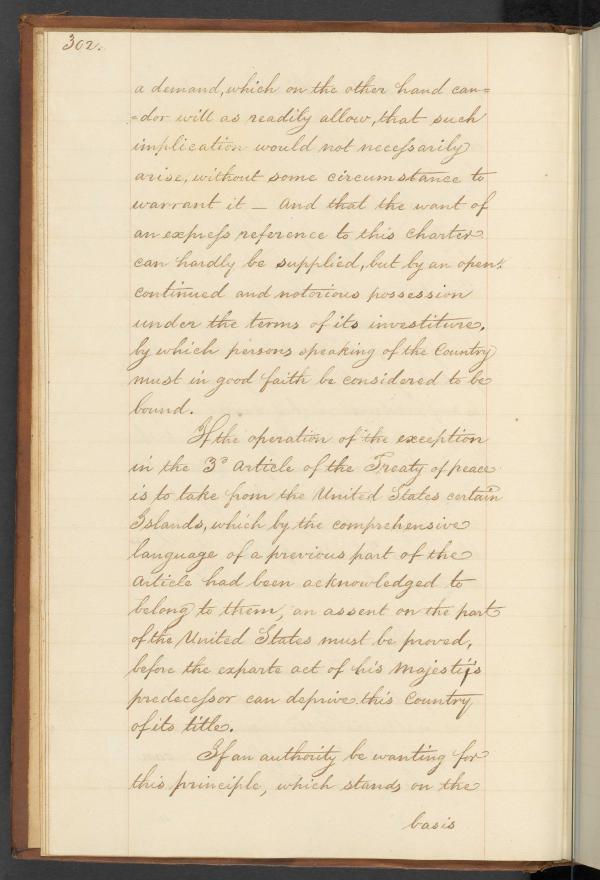 302.
a demand, which on the other hand can=
=dor will as readily allow, that such
implication would not necessarily
arise, without some circumstance to
warrant it — and that the want of
an express reference to this charter
can hardly be supplied, but by an open,
continued and notorious possession
under the terms of its investiture,
by which persons speaking of the Country
must in good faith be considered to be
bound.
If the operation of the exception
in the 3d article of the Treaty of peace
is to take from the United States certain
Islands, which by the comprehensive
language of a previous part of the
article had been acknowledged to
belong to them, an assent on the part
of the United States must be proved,
before the exparte act of his Majesty's
predecessor can deprive this Country
of its title.
If an authority be wanting for
this principle, which stands on the
basis